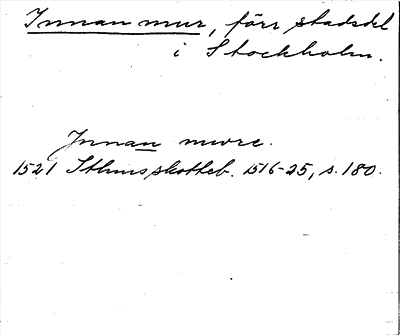 Innan mur, förr stadsdel
i Stockholm.
Innan mure.
1521 Sthms skotteb. 1516-25, s. 180.